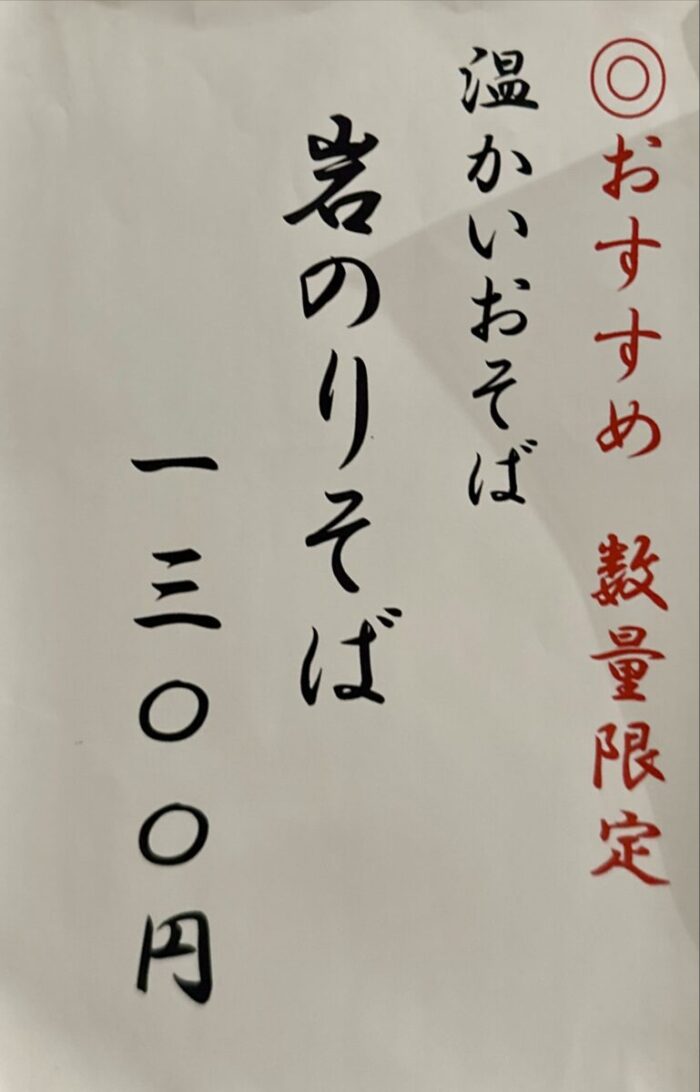 ◎おすすめ 数量限定
温かいおそば
岩のりそば
一三〇〇円